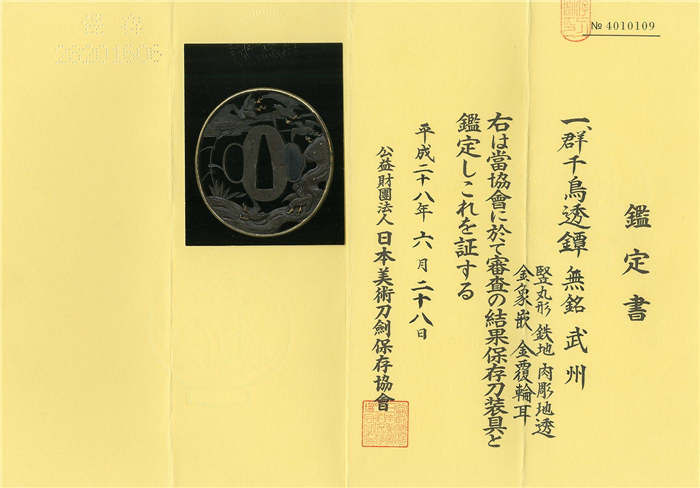 № 4010109
鑑定書
一、群千鳥透鐔 無銘 武州
竪丸形 鉄地 肉彫地透
金象嵌 金覆輪耳
右は當協會に於て審査の結果保存刀装具と
鑑定しこれを証する
平成二十八年 六月 二十八日
公益財團法人 日本美術刀劍保存協會
保存